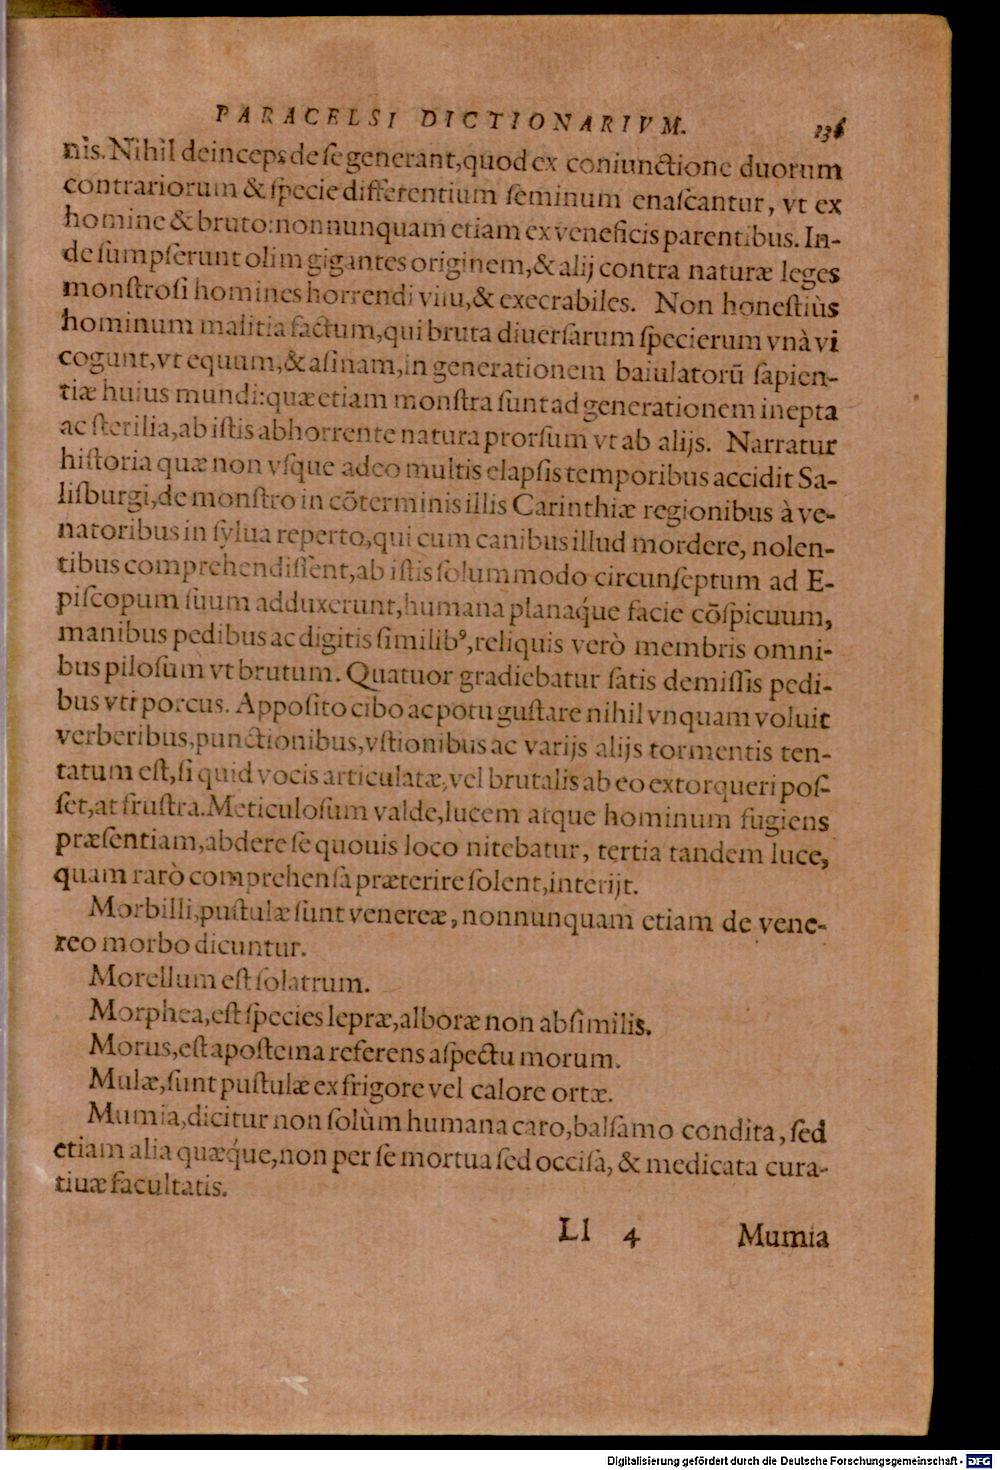 PARACELSI DICTIONARIVM. 136
nis. Nihil deinceps de se generant, quod ex coniunctione duorum
contrariorum & specie differentium seminum enascantur, vt ex
homine & bruto: nonnunquam etiam ex veneficis parentibus. In-
de sumpserunt olim gigantes originem, & alij contra naturæ leges
monstrosi homines horrendi visu, & execrabiles. Non honestiùs
hominum malitia factum, qui bruta diuersarum specierum vnà vi
cogunt, vt equum, & asinam, in generationem baiulatorū sapien-
tiæ huius mundi: quæ etiam monstra sunt ad generationem inepta
ac sterilia, ab istis abhorrente natura prorsum vt ab alijs. Narratur
historia quæ non vsque adeo multis elapsis temporibus accidit Sa-
lisburgi, de monstro in cōterminis illis Carinthiæ regionibus à ve-
natoribus in sylua reperto, qui cum canibus illud mordere, nolen-
tibus comprehendissent, ab istis solummodo circunseptum ad E-
piscopum suum adduxerunt, humana planaq́ue facie cōspicuum,
manibus pedibus ac digitis similibꝰ, reliquis verò membris omni-
bus pilosum vt brutum. Quatuor gradiebatur satis demissis pedi-
bus vti porcus. Apposito cibo ac potu gustare nihil vnquam voluit
verberibus, punctionibus, vstionibus ac varijs alijs tormentis ten-
tatum est, si quid vocis articulatæ, vel brutalis ab eo extorqueri pos-
set, at frustra. Meticulosum valde, lucem atque hominum fugiens
præsentiam, abdere se quouis loco nitebatur, tertia tandem luce,
quam rarò comprehensa præterire solent, interijt.
Morbilli, pustulæ sunt venereæ, nonnunquam etiam de vene-
reo morbo dicuntur.
Morellum est solatrum.
Morphea, est species lepræ, alboræ non absimilis.
Morus, est apostema referens aspectu morum.
Mulæ, sunt pustulæ ex frigore vel calore ortæ.
Mumia, dicitur non solùm humana caro, balsamo condita, sed
etiam alia quæq́ue, non per se mortua sed occisa, & medicata cura-
tiuæ facultatis.
Ll 4 Mumia
Digitalisierung gefördert durch die Deutsche Forschungsgemeinschaft - DFG